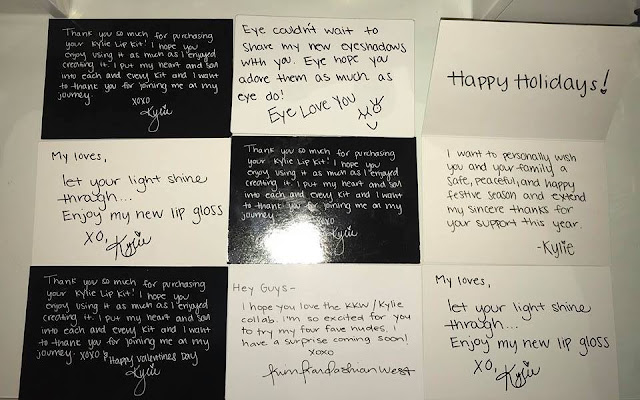 Thank you so much for purchasing
your 'Kylie Lip Kit.' I hope you
enjoy using it as much as I enjoyed
creating it. I put my heart and soul
into each and every kit and I want
to thank you for joining me on my
journey.
xoxo
Kylie
Eye couldn't wait to
share my new eyeshadows
with you. Eye hope you
adore them as much as
eye do!
Eye Love You
Happy Holidays!
My loves,
let your light shine
through...
Enjoy my new lip gloss
XO, Kylie
Thank you so much for purchasing
your 'Kylie Lip Kit.' I hope you
enjoy using it as much as I enjoyed
creating it. I put my heart and soul
into each and every kit and I want
to thank you for joining me on my
journey.
xoxo
Kylie
I want to personally wish
you and your family a
safe, peaceful, and happy
festive season and extend
my sincere thanks for
your support this year.
-Kylie
Thank you so much for purchasing
your 'Kylie Lip Kit.' I hope you
enjoy using it as much as I enjoyed
creating it. I put my heart and soul
into each and every kit and I want
to thank you for joining me on my
journey. xoxo & Happy Valentines Day
Kylie
Hey Guys-
I hope you love the KKW/Kylie
collab. i'm so excited for you
to try my four fave nudes. i
have a surprise coming soon!
xoxo
kim kardashian west
My loves,
let your light shine
through...
Enjoy my new lip gloss
XO, Kylie